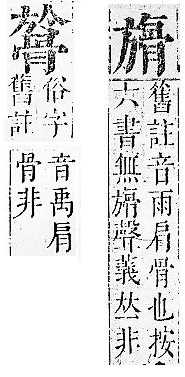 舊註音雨肩骨也按
六書無聲義𠀤非
俗字
舊註
音禹肩
骨非